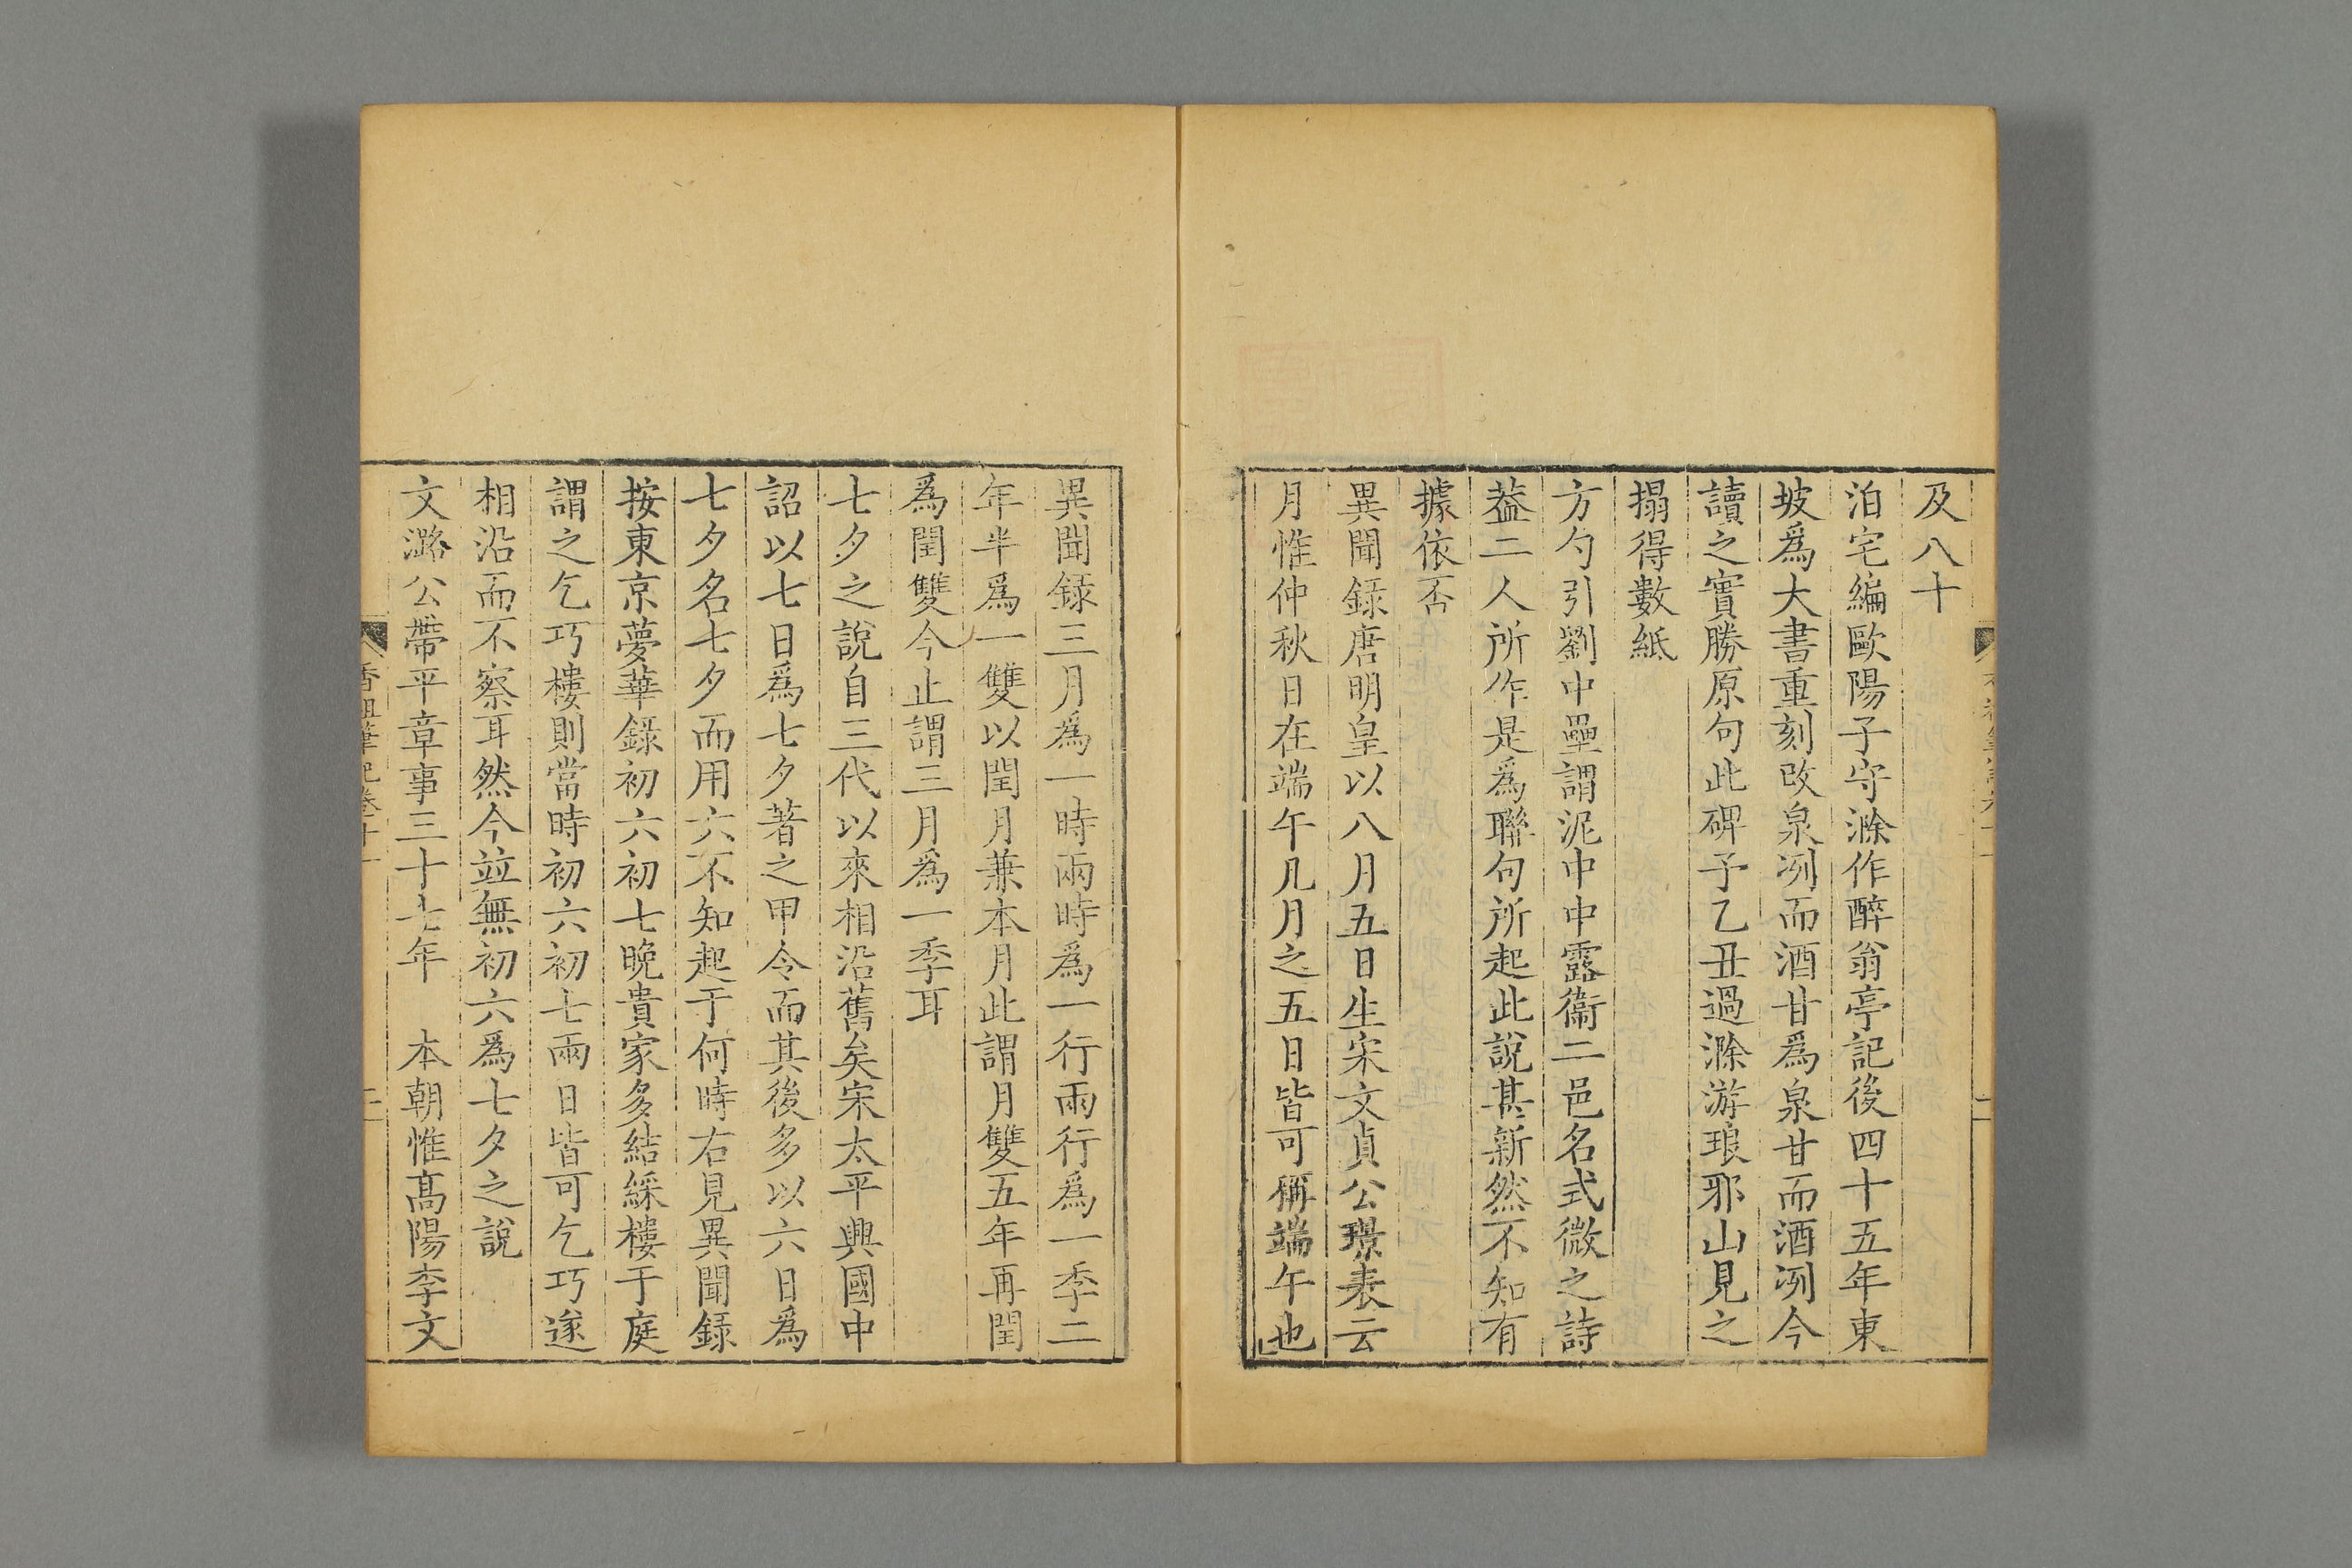 及八十
泊宅編歐陽子守滁作醉翁亭記後四十五年東
坡爲大書重刻改泉冽而酒甘爲泉甘而酒冽今
讀之實勝原句此碑予乙丑過滁游琅邪山見之
搨得數紙
方勺引劉中壘謂泥中中露衞二邑名式微之詩
葢二人所作是爲聯句所起此說甚新然不知有
據依否
異聞錄唐明皇以八月五日生宋文貞公璟表云
月惟仲秋日在端午凡月之五日皆可稱端午也
異聞錄三月爲一時兩時爲一行兩行爲一季二
年半爲一雙以閏月兼本月此謂月雙五年再閏
爲閏雙今止謂三月爲一季耳
七夕之說自三代以來相沿舊矣宋太平興國中
詔以七日爲七夕著之甲令而其後多以六日爲
七夕名七夕而用六不知起于何時右見異聞錄
按東京夢華錄初六初七晚貴家多結綵樓于庭
謂之乞巧樓則當時初六初七兩日皆可乞巧遂
相沿而不察耳然今竝無初六爲七夕之說
文潞公帶平章事三十七年　本朝惟高陽李文
香祖筆記卷十一